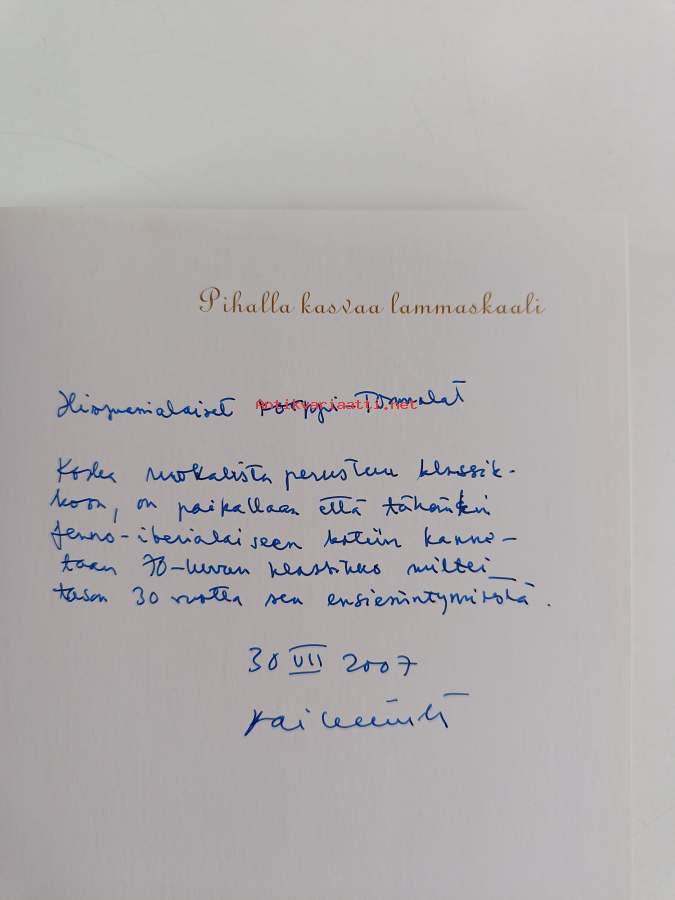 Pihalla kasvaa lammaskaali
Hispanialaiset
Antikvariaatti.net
Koska ruokalista perustuu klassik-
koon, on paikallaan että tähänkin
fenno-iberialaiseen kotiin kanne-
taan 70-luvun klassikko miltei
tasan 30 vuotta sen ensiesiintymisestä.
30 VII 2007